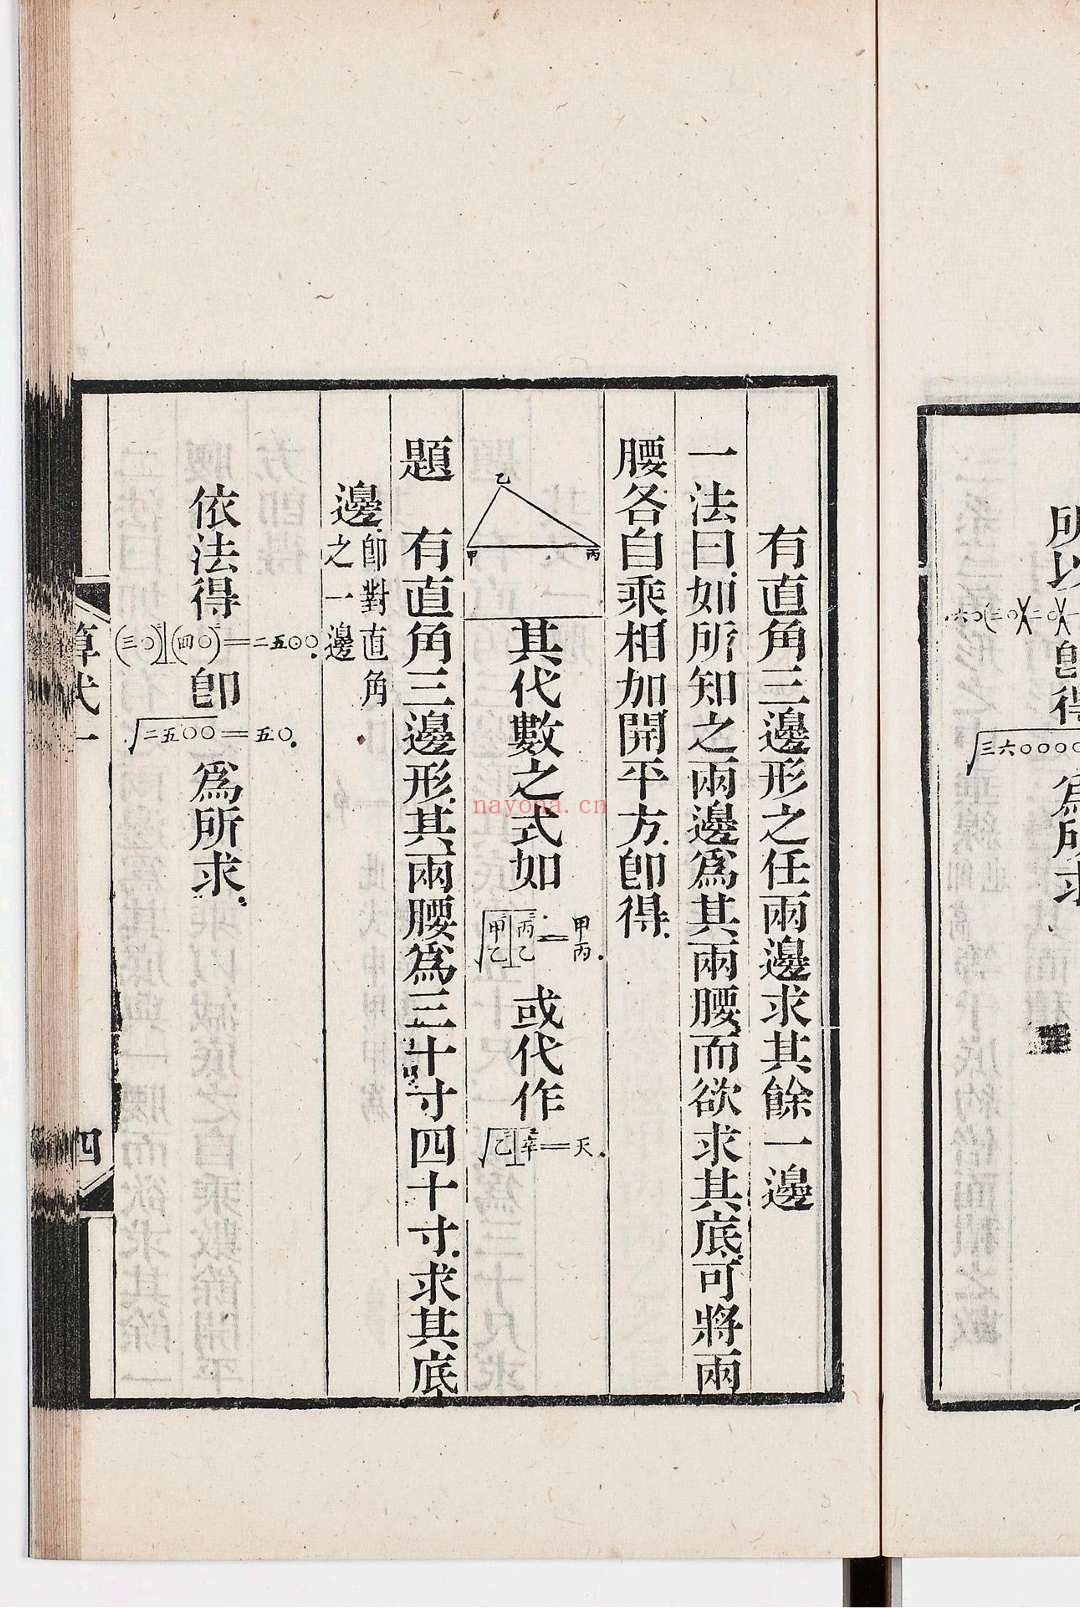 所以
六〇
三〇
二〇
卽得
三六〇〇〇〇
爲所求
有直角三邊形之任兩邊求其餘一邊
一法曰如所知之兩邊爲其兩腰而欲求其底可將兩
腰各自乘相加開平方卽得
乙
甲 丙
其代數之式如
甲乙 丙乙 = 甲丙
或代作
乙 辛 = 天
題 有直角三邊形其兩腰爲三十寸四十寸求其底
邊卽對直角
之一邊
依法得(三〇)⊥(四〇)=二五〇〇卽√二五〇〇=五〇爲所求
算式一
四
nayona.cn